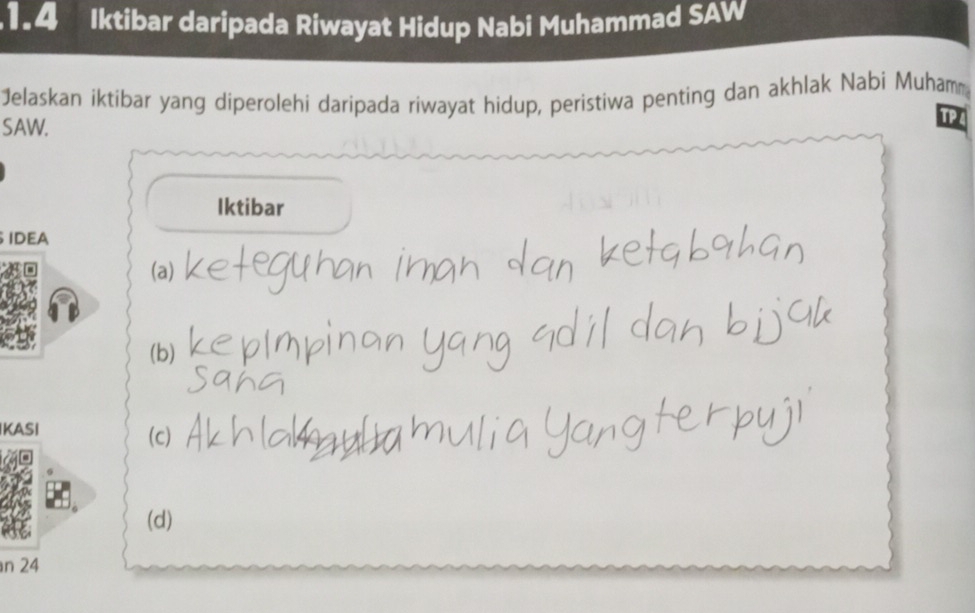 .1.4 Iktibar daripada Riwayat Hidup Nabi Muhammad SAW
Jelaskan iktibar yang diperolehi daripada riwayat hidup, peristiwa penting dan akhlak Nabi Muhamm
SAW.
TP 4
Iktibar
S IDEA
(a) keteguhan iman dan ketabahan
(b) kepimpinan yang adil dan bijak
sana
IKASI
(c) Akhlak mulia yang terpuji
(d)
an 24